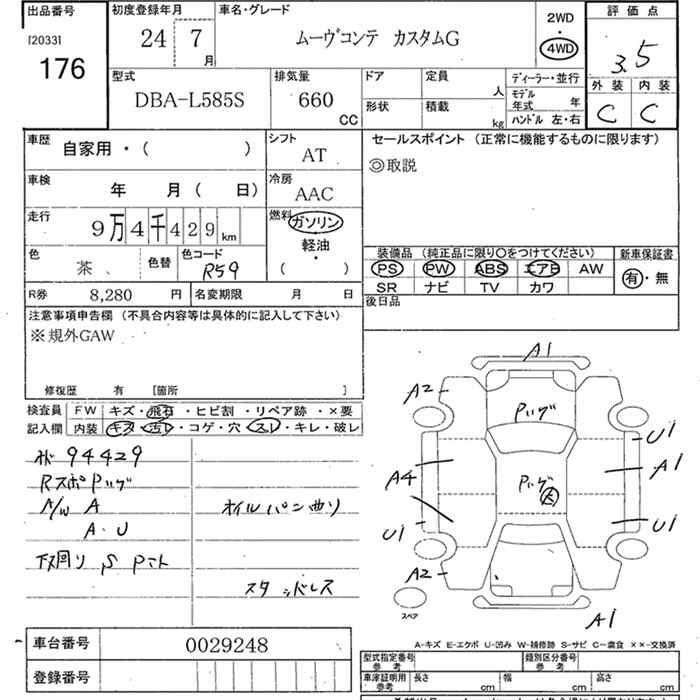 出品番号 初度登録年月 車名・グレード 2WD ・ 4WD 評価点
[2033] 176 24 年 7 月 ムーヴコンテ カスタムG 3.5
型式 排気量 ドア 定員 人 ディーラー・並行 外装 内装
DBA-L585S 660 CC 形状 積載 kg モデル年式 年 ハンドル 左・右 C C
車歴 自家用・( ) シフト AT セールスポイント (正常に機能するものに限ります)
◎取説
車検 年 月 ( 日) 冷房 AAC
走行 9万4千429km 燃料 ガソリン・軽油・( )
色 茶 色替 色コード R59
装備品 (純正品に限り○をつけてください) 新車保証書
PS PW ABS エアB AW 有・無
SR ナビ TV カワ
R券 8,280 円 名変期限 月 日 後日品
注意事項申告欄 (不具合内容等は具体的に記入して下さい)
※規外GAW
修復歴 有 [箇所 ]
検査員 FW キズ・飛石・ヒビ割・リペア跡・×要
記入欄 内装 キズ・汚レ・コゲ・穴・スレ・キレ・破レ
94429
RスポPハゲ
A/W A
A・U
オイルパン曲リ
下回り S Pコト
スタッドレス
A1
A2
Pハゲ
U1
A1
A4
Pハゲ 大
U1
U1
A2
スペア
A1
A-キズ E-エクボ U-凹み W-補修跡 S-サビ C-腐食 ××-交換済
車台番号 0029248
登録番号
型式指定番号 参考 類別区分番号 参考
車庫証明用 参考 長さ cm 幅 cm 高さ cm